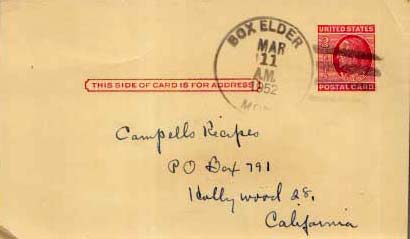 BOX ELDER
MAR
11
A.M.
1952
MON
UNITED STATES
POSTAL CARD
THIS SIDE OF CARD IS FOR ADDRESS
Campells Recipes
PO Box 791
Hollywood 28,
California